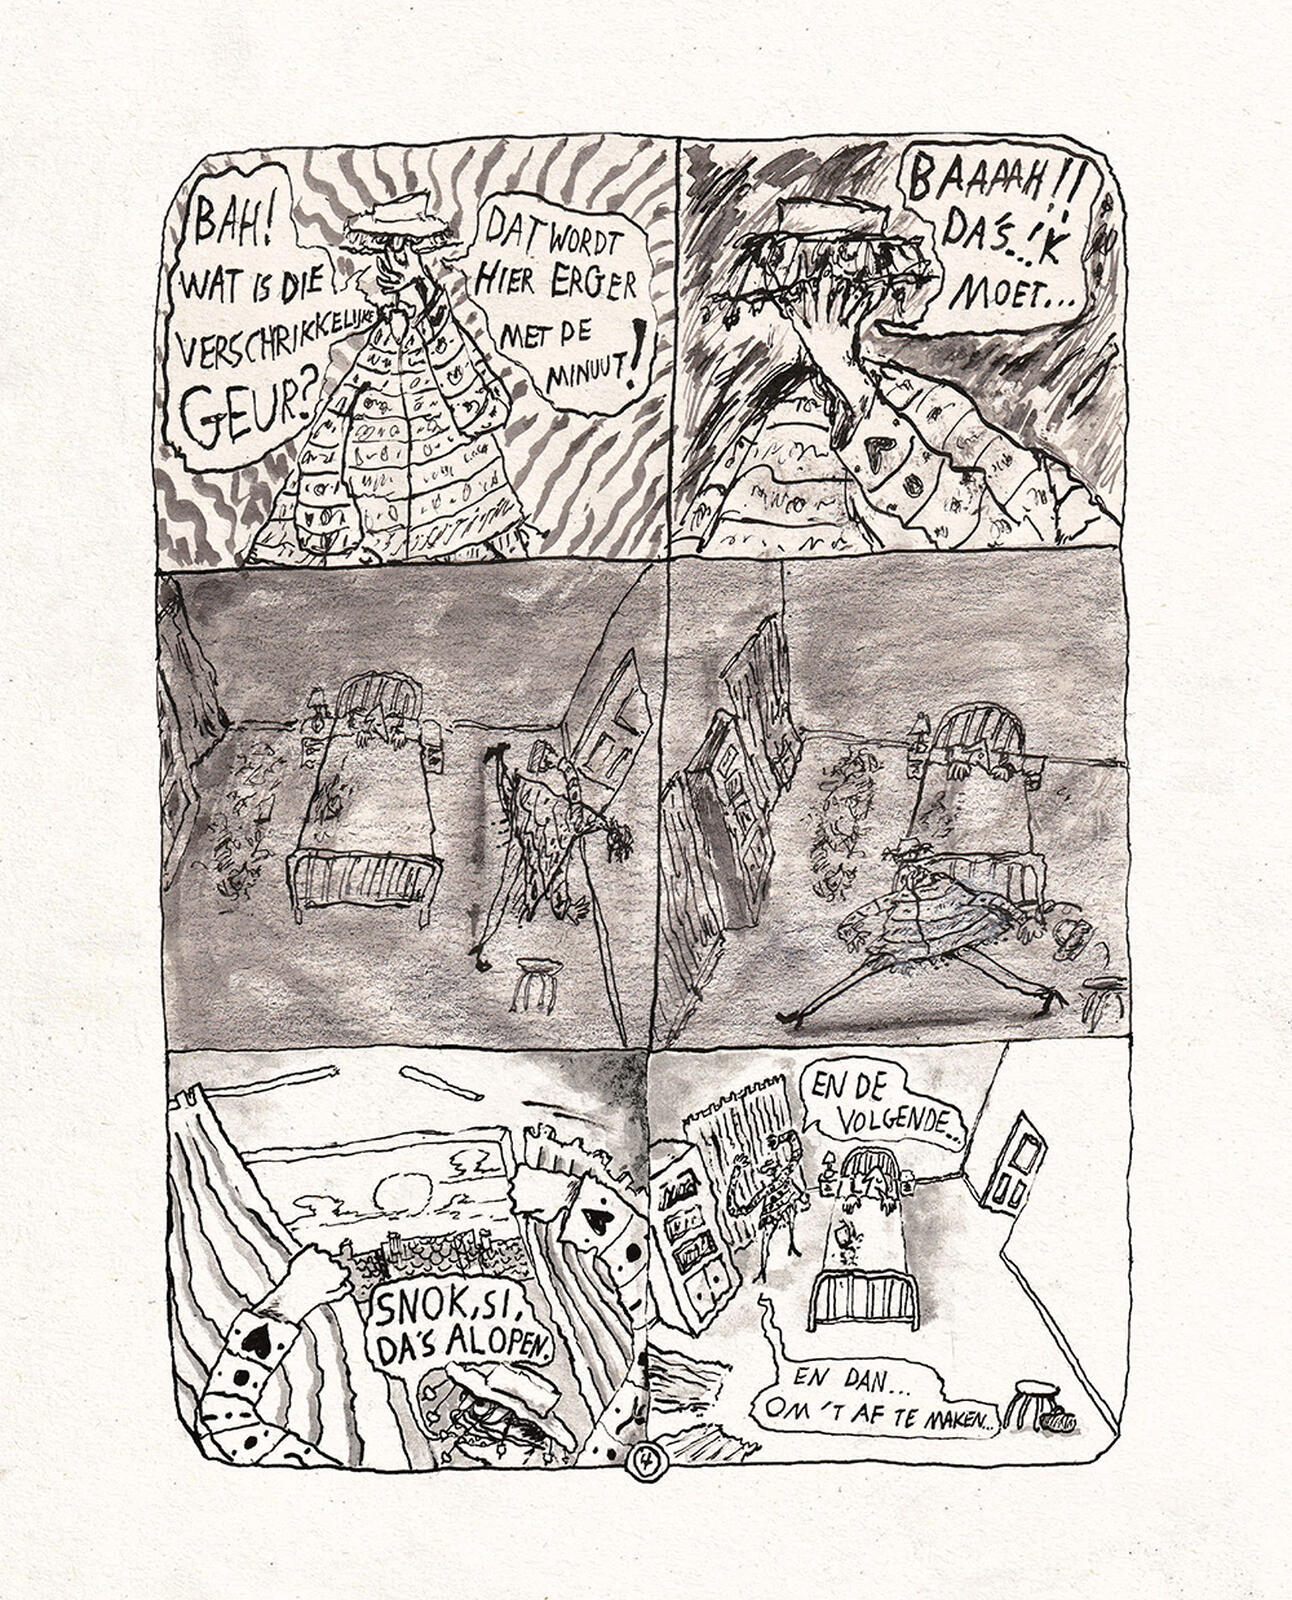 BAH!
WAT IS DIE
VERSCHRIKKELIJKE
GEUR?
DAT WORDT
HIER ERGER
MET DE
MINUUT!
BAAAAH!!
DA'S...'K
MOET...
SNOK, SI,
DA'S ALOPEN.
EN DE
VOLGENDE...
EN DAN...
OM 'T AF TE MAKEN...
4